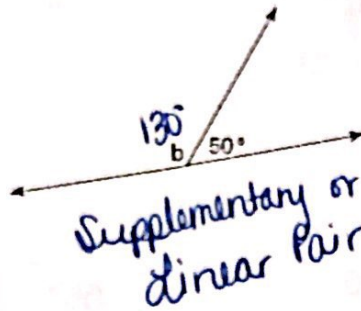 130°
b 50°
Supplementary or
Linear Pair